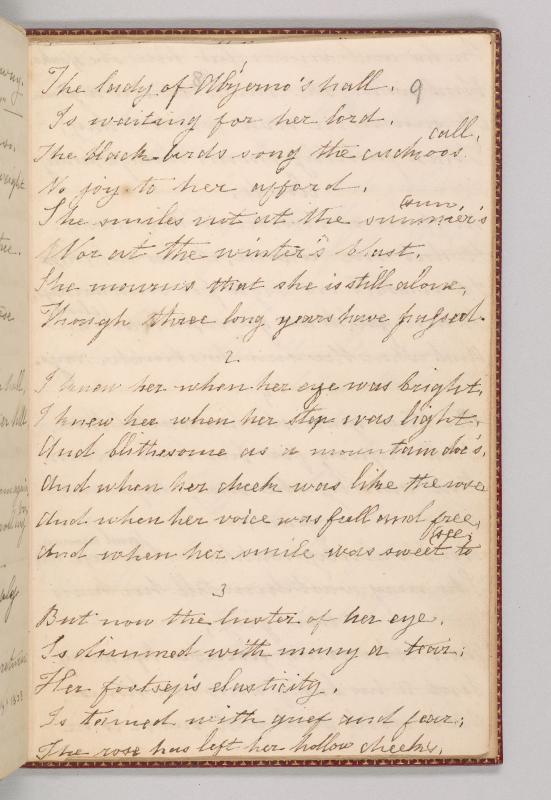 The lady of Alyerno's hall,
9
Is waiting for her lord.
The black-birds song the cuckoos call,
No joy to her afford.
She smiles not at the summer's sun,
Nor at the winter's blast,
She mourns that she is still alone,
Though three long years have passed.
2
I knew her when her eye was bright,
I knew her when her step was light,
And blithesome as a mountain doe's,
And when her cheek was like the rose
And when her voice was full and free,
And when her smile was sweet to see,
3
But now the luster of her eye,
Is dimmed with many a tear;
Her footsep's elasticity,
Is tamed with grief and fear;
The rose has left her hollow cheeks,